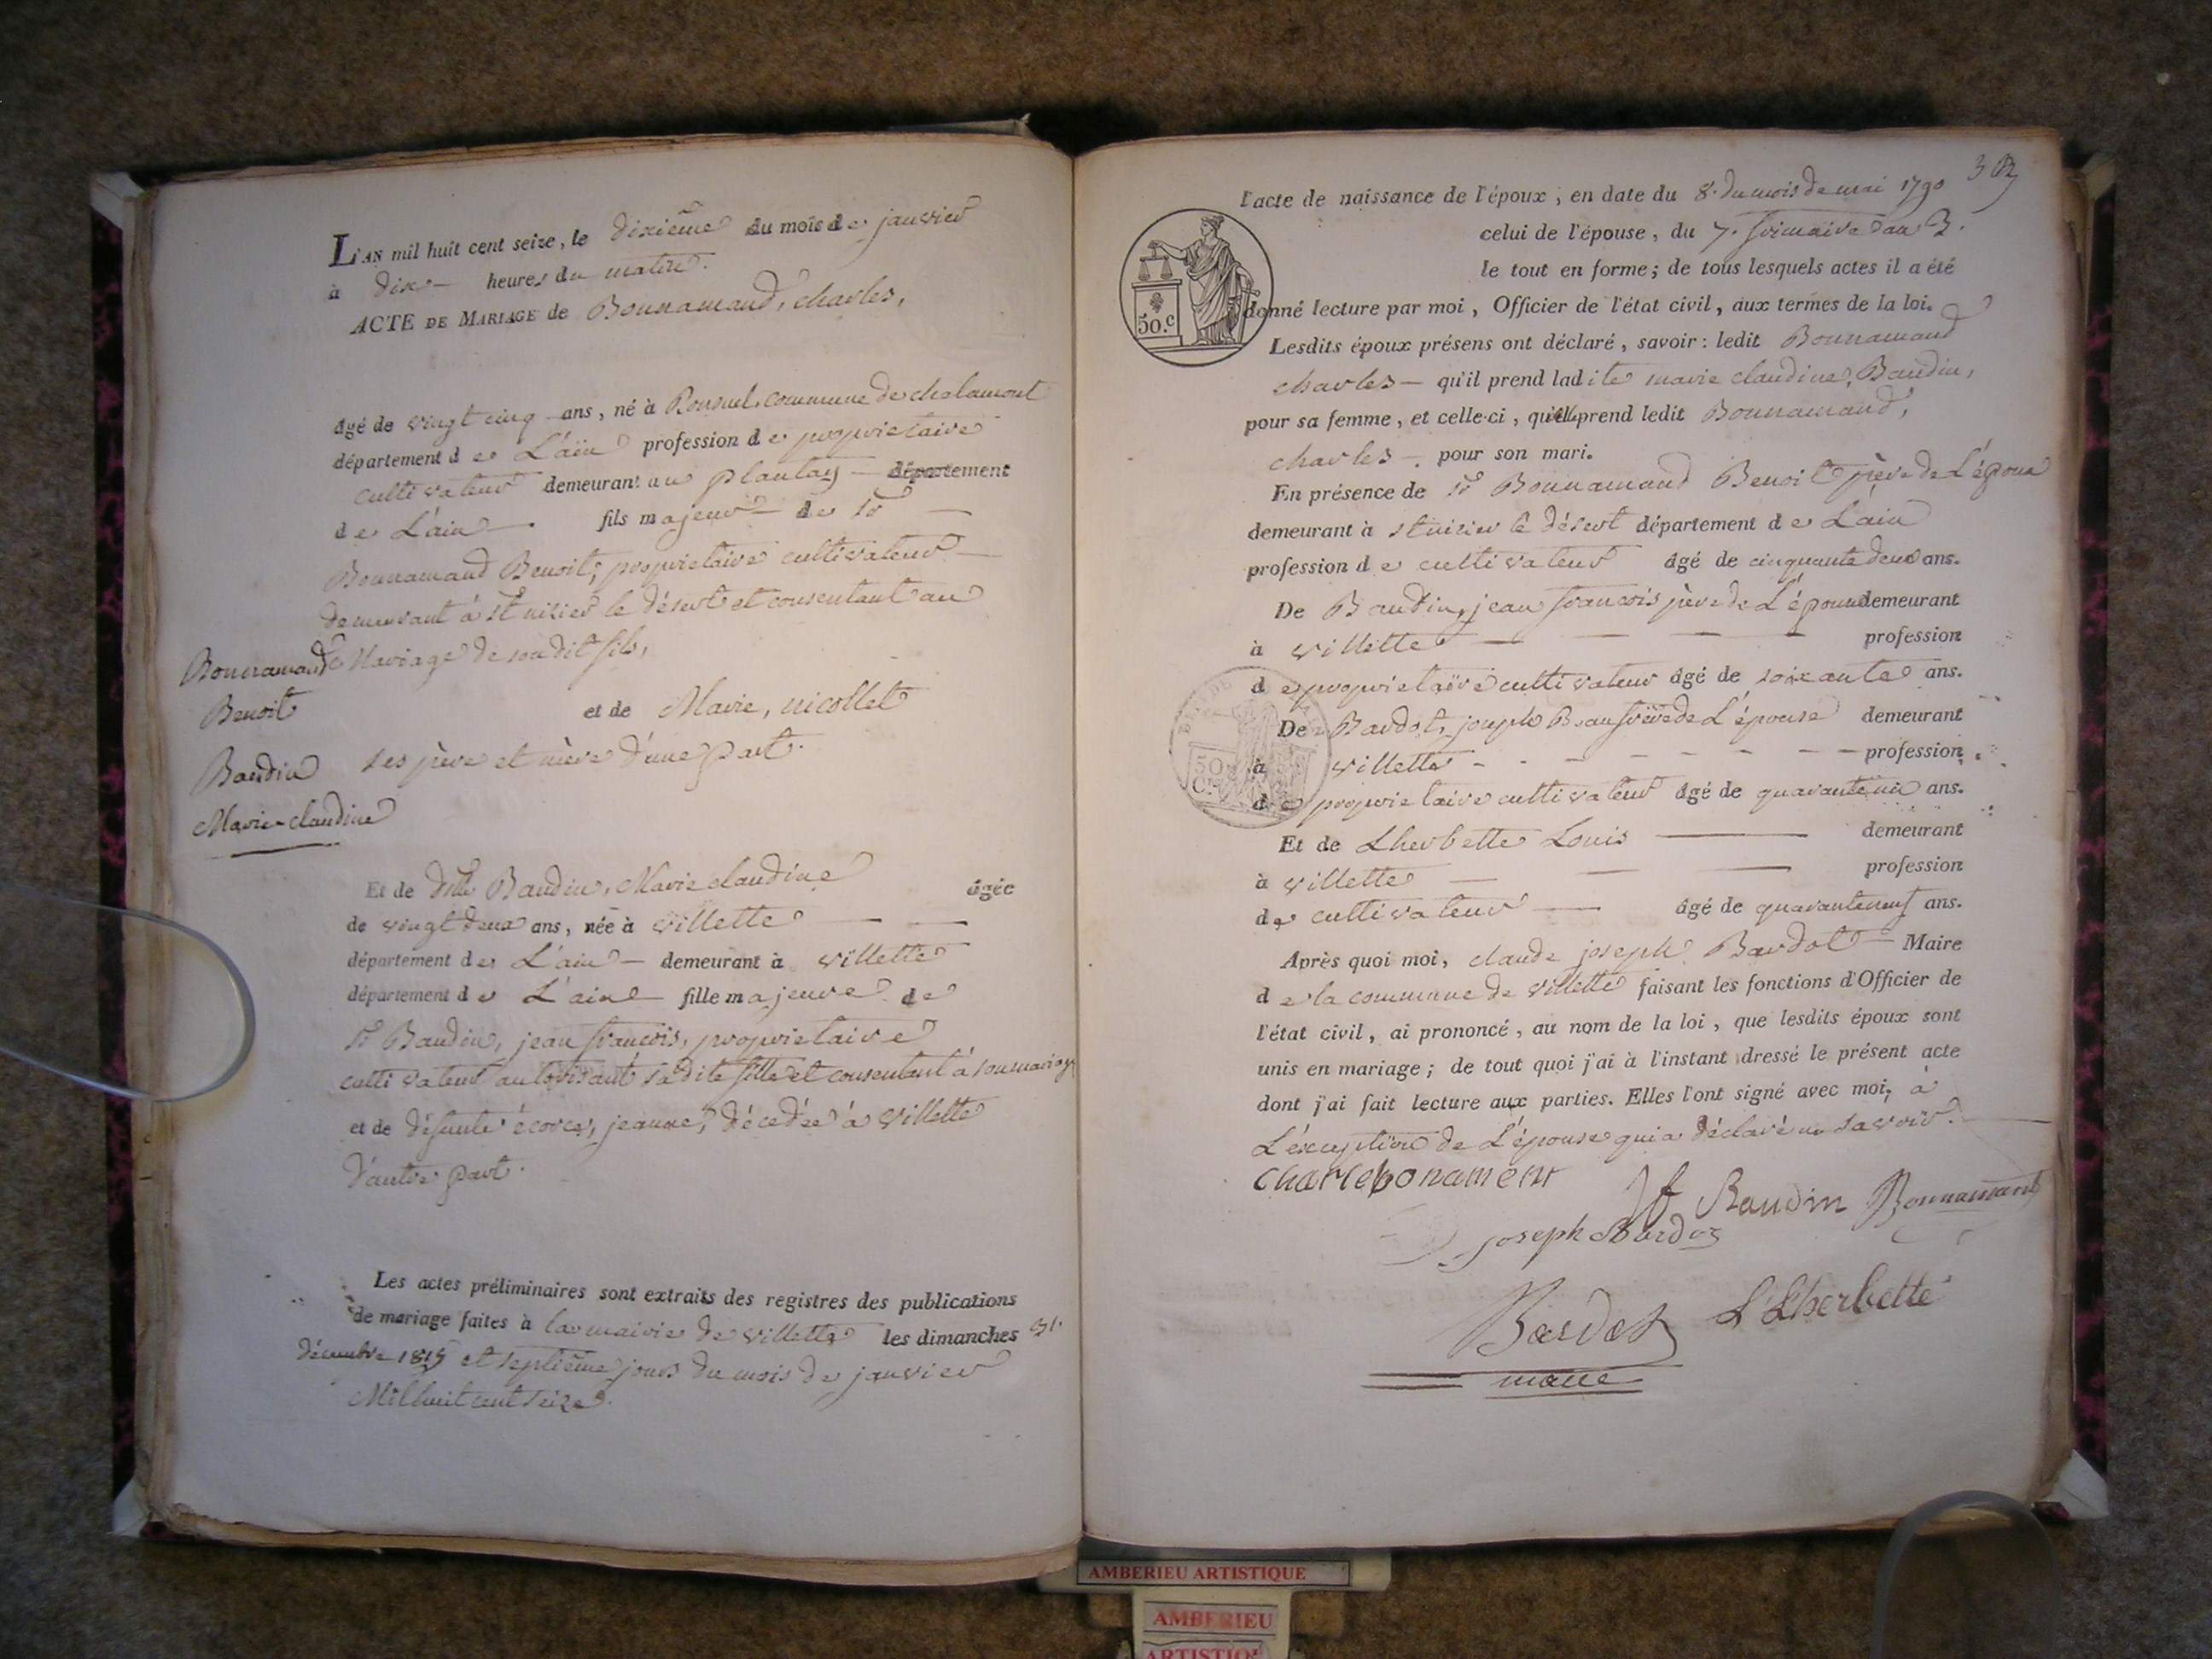 L'AN mil huit cent seize, le dixième du mois de janvier
à dix heures du matin.
ACTE DE MARIAGE de Bonnamand, charles,
âgé de vingt cinq ans, né à Ronzuel commune de chalamont
département de L'ain profession de proprietaire
cultivateur demeurant au plantay département
de L'ain fils majeur de Sr
Bonnamand Benoit, proprietaire cultivateur
demeurant à st nizier le désert et consentant au
Mariage de son dit fils,
Bonnamand
Benoit
et de Marie, nicollet
ses père et mère d'une part.
Baudin
Marie claudine
Et de dlle Baudin, Marie claudine âgée
de vingt deux ans, née à villette
département de L'ain demeurant à villette
département de L'ain fille majeure de
Sr Baudin, jean françois, proprietaire
cultivateur autorisant sadite fille et consentant à son mariage
et de défunte écorcey, jeanne, décédée à villette
d'autre part.
Les actes préliminaires sont extraits des registres des publications
de mariage faites à la mairie de villette les dimanches 31.
décembre 1815 et septième jours du mois de janvier
Mil huit cent seize.
l'acte de naissance de l'époux, en date du 8. du mois de mai 1790
celui de l'épouse, du 7. frimaire an 3.
le tout en forme; de tous lesquels actes il a été
donné lecture par moi, Officier de l'état civil, aux termes de la loi.
50.c
Lesdits époux présens ont déclaré, savoir: ledit Bonnamand
charles qu'il prend ladite marie claudine, Baudin,
pour sa femme, et celle-ci, qu'elle prend ledit Bonnamand,
charles pour son mari.
En présence de Sr Bonnamand Benoit père de L'époux
demeurant à st nizier le désert département de L'ain
profession de cultivateur âgé de cinquante deux ans.
De Baudin, jean francois père de L'épouse demeurant
à villette profession
de proprietaire cultivateur âgé de soixante ans.
De Bardot, joseph Beaufrère de L'épouse demeurant
à villette profession
de proprietaire cultivateur âgé de quarante un ans.
Et de Lherbette Louis demeurant
à villette profession
de cultivateur âgé de quaranteneuf ans.
Après quoi moi, claude joseph Bardot Maire
de la commune de villette faisant les fonctions d'Officier de
l'état civil, ai prononcé, au nom de la loi, que lesdits époux sont
unis en mariage; de tout quoi j'ai à l'instant dressé le présent acte
dont j'ai fait lecture aux parties. Elles l'ont signé avec moi, à
L'éxception de L'épouse qui a déclaré ne savoir.
charle bonament
Jf Baudin Bonnamand
joseph Bardot
Bardot L Lherbette
maire
AMBERIEU ARTISTIQUE
AMBERIEU
ARTISTIQUE